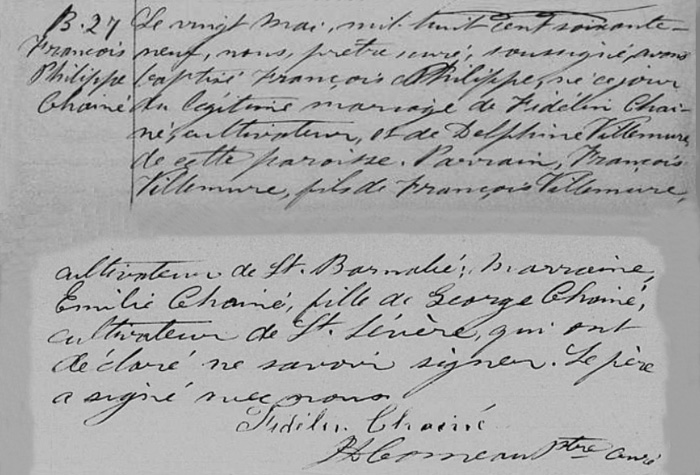 B. 27
François
Philippe
Chainé
Le vingt Mai, mil huit cent soixante-
neuf, nous, prêtre curé, soussigné, avons
baptisé François Philippe, né ce jour
du légitime mariage de Fidélin Chai-
né, cultivateur, et de Delphine Villemure,
de cette paroisse. Parrain, François
Villemure, fils de François Villemure,
cultivateur de St. Barnabé; Marraine,
Emilie Chainé, fille de George Chainé,
cultivateur de St. Sévère, qui ont
déclaré ne savoir signer. Le père
a signé avec nous.
Fidélin Chainé
Comeau Ptre Curé